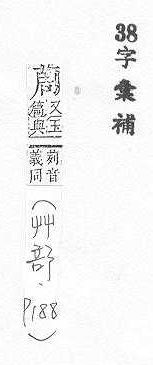 38字彙補
又玉
篇與
音
義同
(艸部.P188)